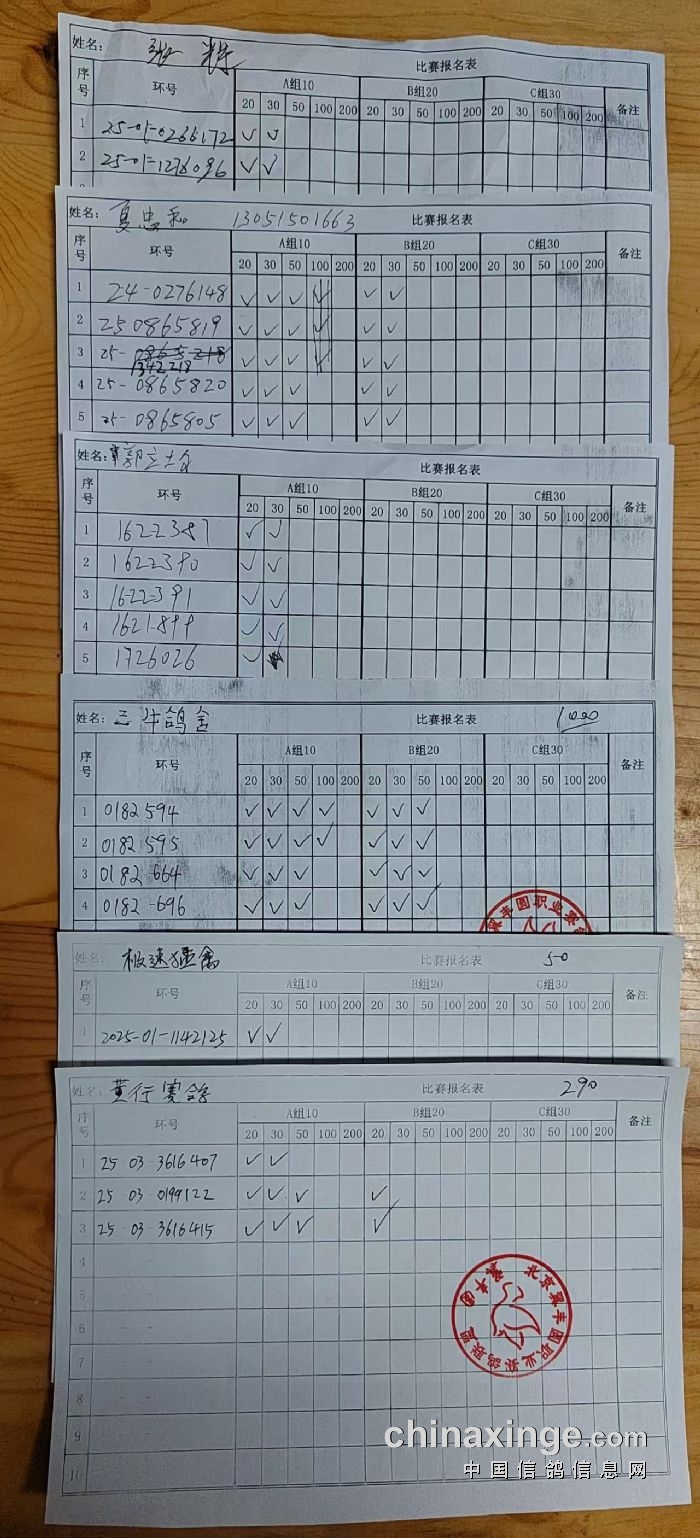 姓名: 比赛报名表
序号 环号 A组10 B组20 C组30 备注
20 30 50 100 200 20 30 50 100 200 20 30 50 100 200
1 25-01-0266172 ✓ ✓
2 25-01-1278096 ✓ ✓
姓名: 夏忠和 13051501663 比赛报名表
序号 环号 A组10 B组20 C组30 备注
20 30 50 100 200 20 30 50 100 200 20 30 50 100 200
1 24-0276148 ✓ ✓ ✓ ✓ ✓ ✓
2 250865819 ✓ ✓ ✓ ✓ ✓ ✓
3 25-0865218 ✓ ✓ ✓ ✓ ✓ ✓
1342218
4 25-0865820 ✓ ✓ ✓ ✓ ✓
5 25-0865805 ✓ ✓ ✓ ✓ ✓
姓名: 比赛报名表
序号 环号 A组10 B组20 C组30 备注
20 30 50 100 200 20 30 50 100 200 20 30 50 100 200
1 1622387 ✓ ✓
2 1622390 ✓ ✓
3 1622391 ✓ ✓
4 1621899 ✓ ✓
5 1726026 ✓
姓名: 三牛鸽舍 比赛报名表 1000
序号 环号 A组10 B组20 C组30 备注
20 30 50 100 200 20 30 50 100 200 20 30 50 100 200
1 0182594 ✓ ✓ ✓ ✓ ✓ ✓ ✓
2 0182595 ✓ ✓ ✓ ✓ ✓ ✓ ✓
3 0182-664 ✓ ✓ ✓ ✓ ✓ ✓
4 0182-696 ✓ ✓ ✓ ✓ ✓ ✓
翼丰圆职业赛
姓名: 极速猛禽 比赛报名表 50
序号 环号 A组10 B组20 C组30 备注
20 30 50 100 200 20 30 50 100 200 20 30 50 100 200
1 2025-01-1142125 ✓ ✓
姓名: 黄行赛鸽 比赛报名表 290
序号 环号 A组10 B组20 C组30 备注
20 30 50 100 200 20 30 50 100 200 20 30 50 100 200
1 25-03-3616407 ✓ ✓
2 25-03-0199122 ✓ ✓ ✓ ✓
3 25-03-3616415 ✓ ✓ ✓ ✓
4 - -
5 - -
6 - -
7 - -
8 - -
9 - -
10
北京翼丰圆职业赛鸽联盟 翼丰圆
chinaxinge.com
中国信鸽信息网